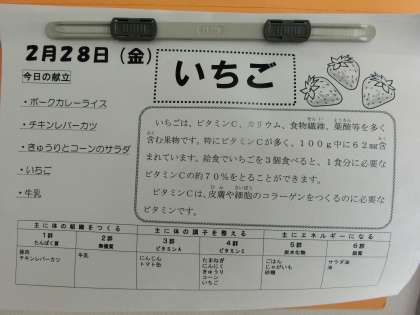 2月28日（金）
いちご
今日の献立
・ポークカレーライス
・チキンレバーカツ
・きゅうりとコーンのサラダ
・いちご
・牛乳
いちごは、ビタミンC、カリウム、食物繊維、葉酸等を多く
含む果物です。特にビタミンCが多く、100g中に62mg含
まれています。給食でいちごを3個食べると、1食分に必要な
ビタミンCの約70％をとることができます。
ビタミンCは、皮膚や細胞のコラーゲンをつくるのに必要な
ビタミンです。
主に体の組織をつくる 主に体の調子を整える 主にエネルギーになる
1群 2群 3群 4群 5群 6群
たんぱく質 無機質 ビタミンA ビタミンC 炭水化物 脂質
豚肉 牛乳 にんじん たまねぎ ごはん サラダ油
チキンレバーカツ トマト缶 にんにく じゃがいも 油
きゅうり 砂糖
コーン
いちご